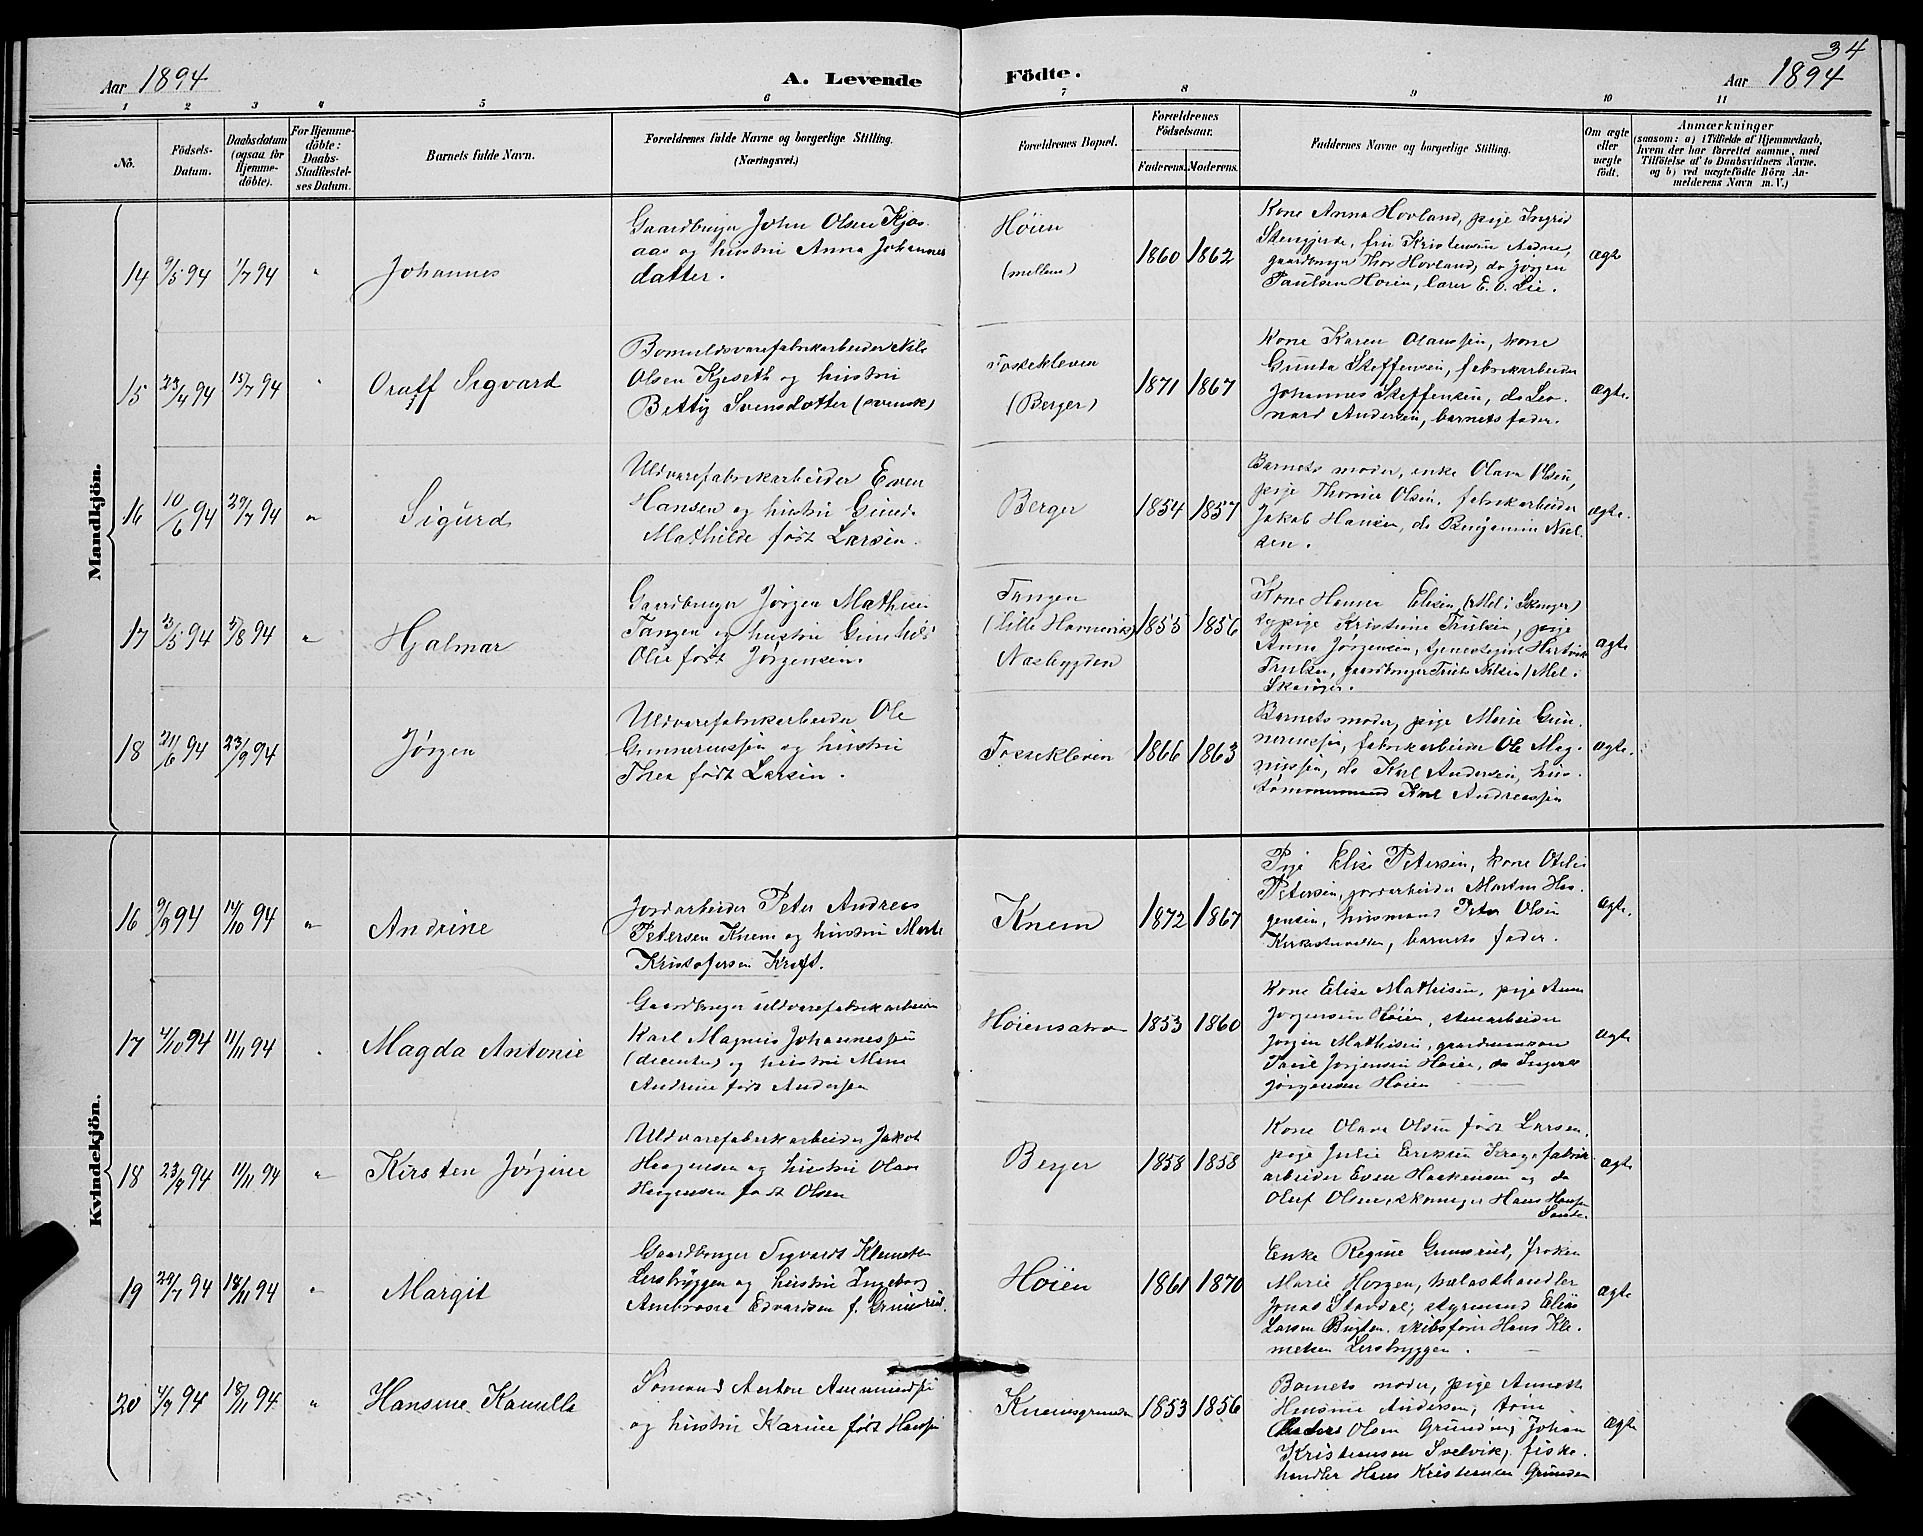 34
Aar 1894
A. Levende
Födte.
Aar 1894
1 2 3 4 5 6 7 8 9 10 11
No.
Födsels-Datum.
Daabsdatum (ogsaa for Hjemme-döbte).
For Hjemme-döbte: Daabs-Stadfestel-ses Datum.
Barnets fulde Navn.
Forældrenes fulde Navne og borgerlige Stilling.
(Næringsvei.)
Forældrenes Bopæl.
Forældrenes Födselsaar.
Faderens. Moderens.
Faddernes Navne og borgerlige Stilling.
Om ægte eller uægte født.
Anmærkninger
(saasom: a) i Tilfælde af Hjemmedaab, hvem der har forrettet samme, med Tilföielse af to Daabsvidners Navne, og b) ved uægtefödte Börn An-melderens Navn m. V.)
Mandkjön.
14 9/5 94 1/7 94 " Johannes
Gaardbruger John Olsen Kjos
aas og hustru Anna Johannes
datter.
Høien
(mellem)
1860 1862
Kone Anna Hovland, pige Ingrid
Stengjerde, fru Kristensen
gaardbruger Thor Hovland, do Jørgen
Paulsen Høien, lærer E. O. Lie.
ægte
15 23/4 94 15/7 94 " Oraff Sigvard
Bomuldsvarefabrikarbeider Nils
Olsen Kjeseth og hustru
Betty Svensdatter (svensk)
Fossekleven
(Berger)
1871 1867
Kone Karen Olaussen, kone
Gunda Steffensen, fabrikarbeider
Johannes Steffensen, do Leo-
nard Andersen, barnets fader.
ægte.
16 10/6 94 29/7 94 " Sigurd
Uldvarefabrikarbeider Even
Hansen og hustru
Mathilde født Larsen.
Berger
1854 1857
Barnets moder, enke Olava Olsen,
pige Thomine Olsen, fabrikarbeider
Jakob Hansen, do Benjamin Niel-
sen.
ægte.
17 23/5 94 5/8 94 " Hjalmar
Gaardbruger Jørgen Mathisen
Tangen og hustru Gunhild
Olie født Jørgensen.
Tangen
(Lille Havnevik)
Næsbygden
1855 1856
Kone Elisen,
pige Kristine Trulsen, pige
Anna Jørgensen, Hartvik
Trulsen, gaardbruger Truls Nilsen
Skanger.
ægte
18 21/6 94 23/9 94 Jørgen
Uldvarefabrikarbeider Ole
Gunneriussen og hustru
Thea født Larsen.
Fossekleven
1866 1863
Barnets moder, pige Marie Gun-
neriussen, fabrikarbeider Ole Mag-
nussen, do Karl Andersen, hus-
tømmermand Karl Andreassen
ægte.
Kvindekjön.
16 9/9 94 14/10 94 " Andrine
Jordarbeider Peter Andreas
Petersen Knem og hustru Marte
Kristofersen Kreft.
Knem
1872 1867
Pige Elise Petersen, kone Otelie
Petersen, jordarbeider Morten Haa-
gensen, husmand Peter Olsen
barnets fader.
ægte.
17 4/10 94 11/11 94 Magda Antonie
Gaardbruger uldvarefabrikarbeider
Karl Magnus Johannessen
(dissenter) og hustru Mina
Andrine født Andersen
Høiensætra
1853 1860
Kone Elise Mathisen, pige Anna
Jørgensen Høien, stenarbeider
Jørgen Mathisen, gaardmann
Paul Jørgensen Høien, do Ingvald
Jørgensen Høien
ægte
18 23/9 94 11/11 94 " Kirsten Jørgine
Uldvarefabrikarbeider Jakob
Haagensen og hustru Olava
Haagensen født Olsen
Berger
1858 1858
Kone Olava Olsen født Larsen,
pige Julie Eriksen Krage, fabrik
arbeider Even Haakensen og do
Oluf Olsen, skomager Hans Hansen
Sande.
ægte
19 29/7 94 18/11 94 " Margit
Gaardbruger Sigvardt Klemetsen
Lersbryggen og hustru Ingeborg
Ambrosia Edvardsen f. Grimsrud.
Høien
1861 1870
Enke Regine Grimsrud, frøken
Marie Horgen, trælasthandler
Jonas Stavdal, styrmand Elias
Larsen skibsfører Hans Kle-
metsen Lersbryggen.
ægte
20 4/9 94 18/11 94 " Hansine Kamilla
Sømand Anton Amundsen
og hustru Karine født Hansen
Knemsgrunden
1853 1856
Barnets moder, pige Annette
Hansine Andersen, tøm.
Anders Olsen Grunden, Johan
Kristiansen Svelvik, fiske-
handler Hans Kristiansen Grunden
ægte